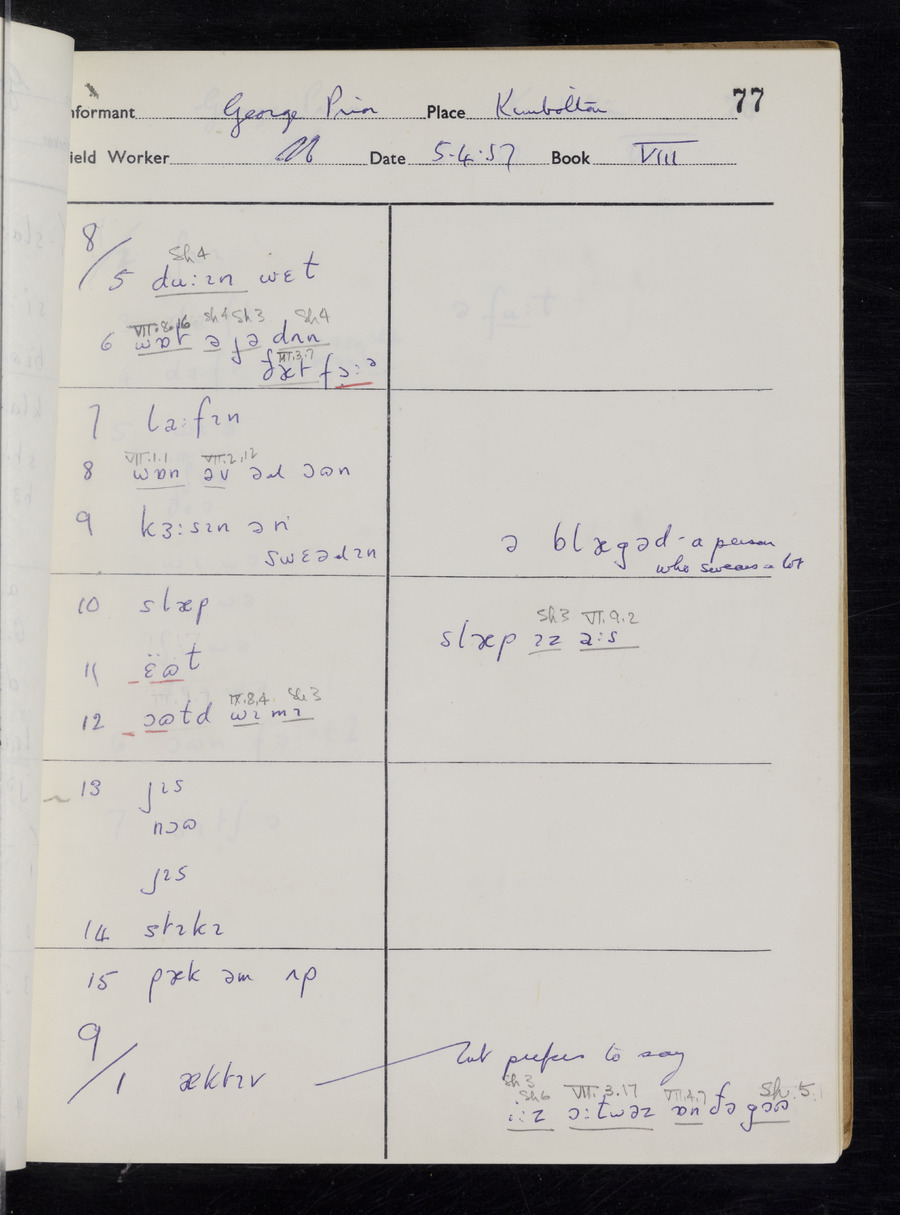 77
nformant George Prior Place Kimbolton
ield Worker Date 5.4.57 Book VIII
8/
Sh4
5 du:ɪn wɛt
VII.8.16 Sh4 Sh3 Sh4
6 wɒt ə jə dʌn
VII.3.7
ðæt fɔ:ᵊ
7 la:fɪn
VII.1.1 VII.2.12
8 wɒn əv əɹ ɔɷn
9 kɜ:sɪn ən
swɛəɹɪn
ə blægəd - a person
who swears a lot
10 slæp
Sh3 VI.9.2
slæp ɪz a:s
11 ɛ̈ɷ̈t
IX.8.4. Sh.3
12 ɔɷtd wɪ mɪ
~ 13 jɪs
nɔɷ
jɪs
14 stɪkɪ
15 pæk əm ʌp
9/
1 æktɪv
but prefers to say
Sh3
Sh6 VII.3.17 VII.4.7 Sh.5.
i:z ɔ:twəz ɒn ðə gɔɷ